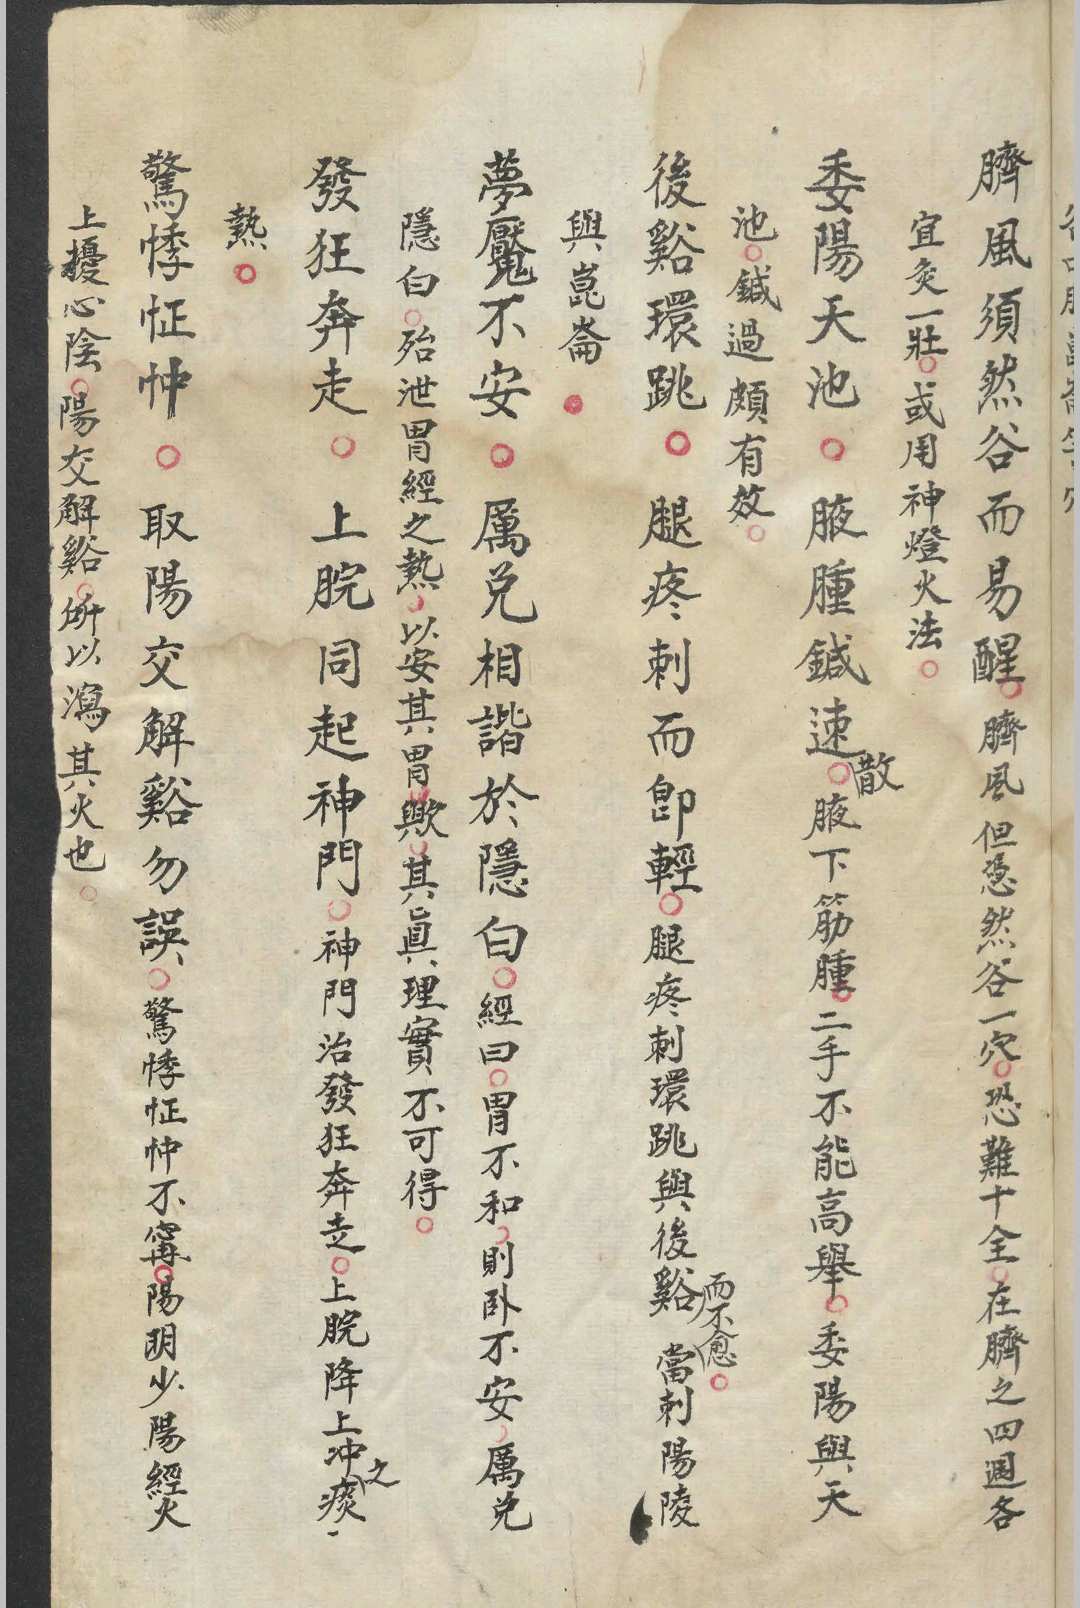 臍風須然谷而易醒。臍風但憑然谷一穴。恐難十全。在臍之四週各
宜灸一壯。或用神燈火法。
委陽天池。腋腫鍼速散。腋下筋腫。二手不能高舉。委陽與天
池。鍼過頗有效。
後谿環跳。腿疼刺而卽輕。腿疼刺環跳與後谿而不愈。當刺陽陵
與崑崙。
夢魘不安。厲兌相諧於隱白。經曰。胃不和。則臥不安。厲兌
隱白。殆泄胃經之熱。以安其胃歟。其眞理實不可得。
發狂奔走。上脘同起神門。神門治發狂奔走。上脘降上冲之痰
熱。
驚悸怔忡。取陽交解谿勿誤。驚悸怔忡不寗。陽明少陽經火
上擾心陰。陽交解谿。所以瀉其火也。